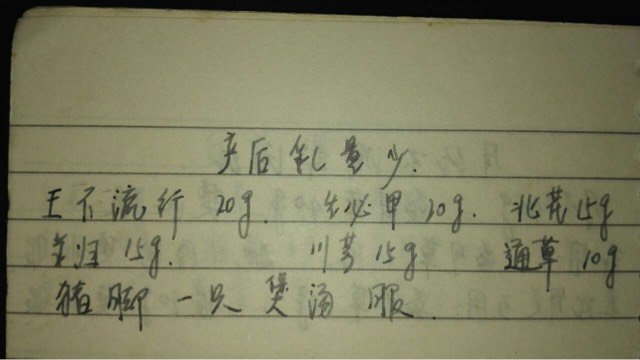 产后乳量少.
王不流行 20g. 生必甲 20g. 北芪 15g
当归 15g. 川芎 15g 通草 10g
猪脚一只 煲汤 服.